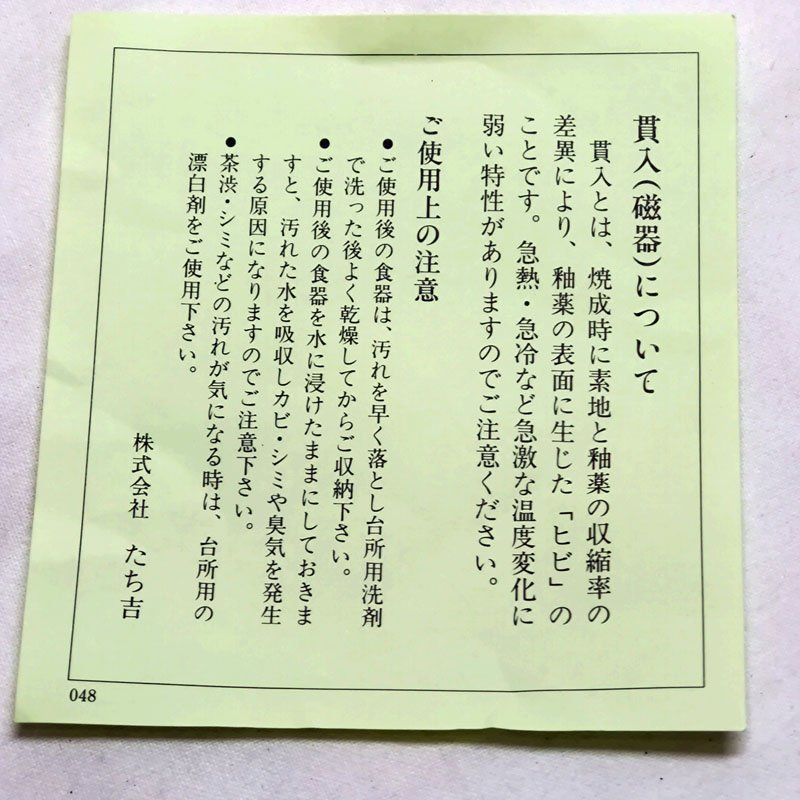 貫入(磁器)について
貫入とは、焼成時に素地と釉薬の収縮率の
差異により、釉薬の表面に生じた「ヒビ」の
ことです。急熱・急冷など急激な温度変化に
弱い特性がありますのでご注意ください。
ご使用上の注意
●ご使用後の食器は、汚れを早く落とし台所用洗剤
で洗った後よく乾燥してからご収納下さい。
●ご使用後の食器を水に浸けたままにしておきま
すと、汚れた水を吸収しカビ・シミや臭気を発生
する原因になりますのでご注意下さい。
●茶渋・シミなどの汚れが気になる時は、台所用の
漂白剤をご使用下さい。
株式会社 たち吉
048